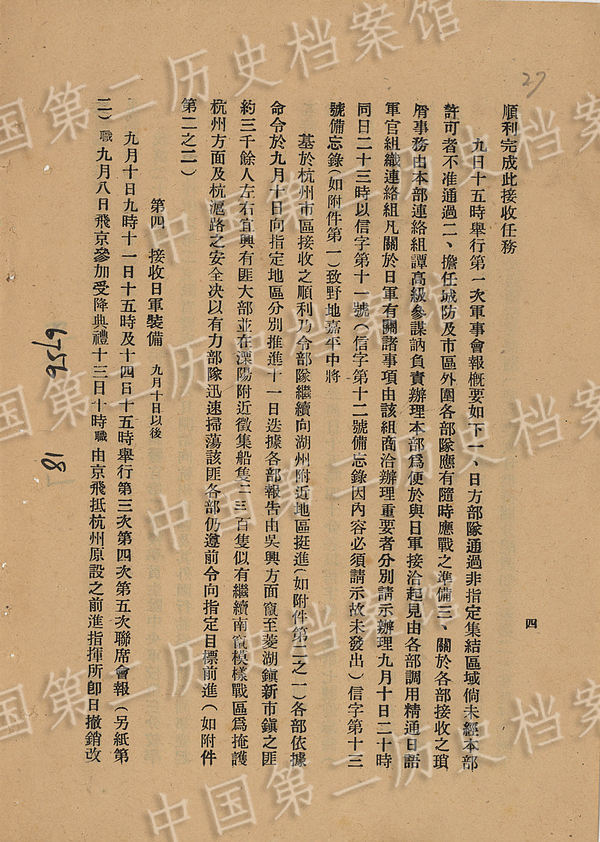 27
順利完成此接收任務
九日十五時舉行第一次軍事會報概要如下一、日方部隊通過非指定集結區域倘未經本部
許可者不准通過二、擔任城防及市區外圍各部隊應有隨時應戰之準備三、關於各部接收之瑣
屑事務由本部連絡組譚高級參謀訥負責辦理本部爲便於與日軍接洽起見由各部調用精通日語
軍官組織連絡組凡關於日軍有關諸事項由該組商洽辦理重要者分別請示辦理九月十日二十時
同日二十三時以信字第十一號(信字第十二號備忘錄因內容必須請示故未發出)信字第十三
號備忘錄(如附件第一)致野地嘉平中將
基於杭州市區接收之順利乃令部隊繼續向湖州附近地區挺進(如附件第二之一)各部依據
命令於九月十日向指定地區分別推進十一日迭據各部報告由吳興方面竄至菱湖鎭新市鎭之匪
約三千餘人左右宜興有匪大部並在溧陽附近徵集船隻二三百隻似有繼續南竄模樣戰區爲掩護
杭州方面及杭滬路之安全決以有力部隊迅速掃蕩該匪各部仍遵前令向指定目標前進(如附件
第二之二)
第四 接收日軍裝備 九月十日以後
九月十日九時十一日十五時及十四日十五時舉行第三次第四次第五次聯席會報(另紙第
二)職九月八日飛京參加受降典禮十三日十時職由京飛抵杭州原設之前進指揮所卽日撤銷改
四
6756
18
中国第二历史档案馆
中国第二历史档案馆
中国第二历史档案馆
中国第二历史档案馆
中国第二历史档案馆